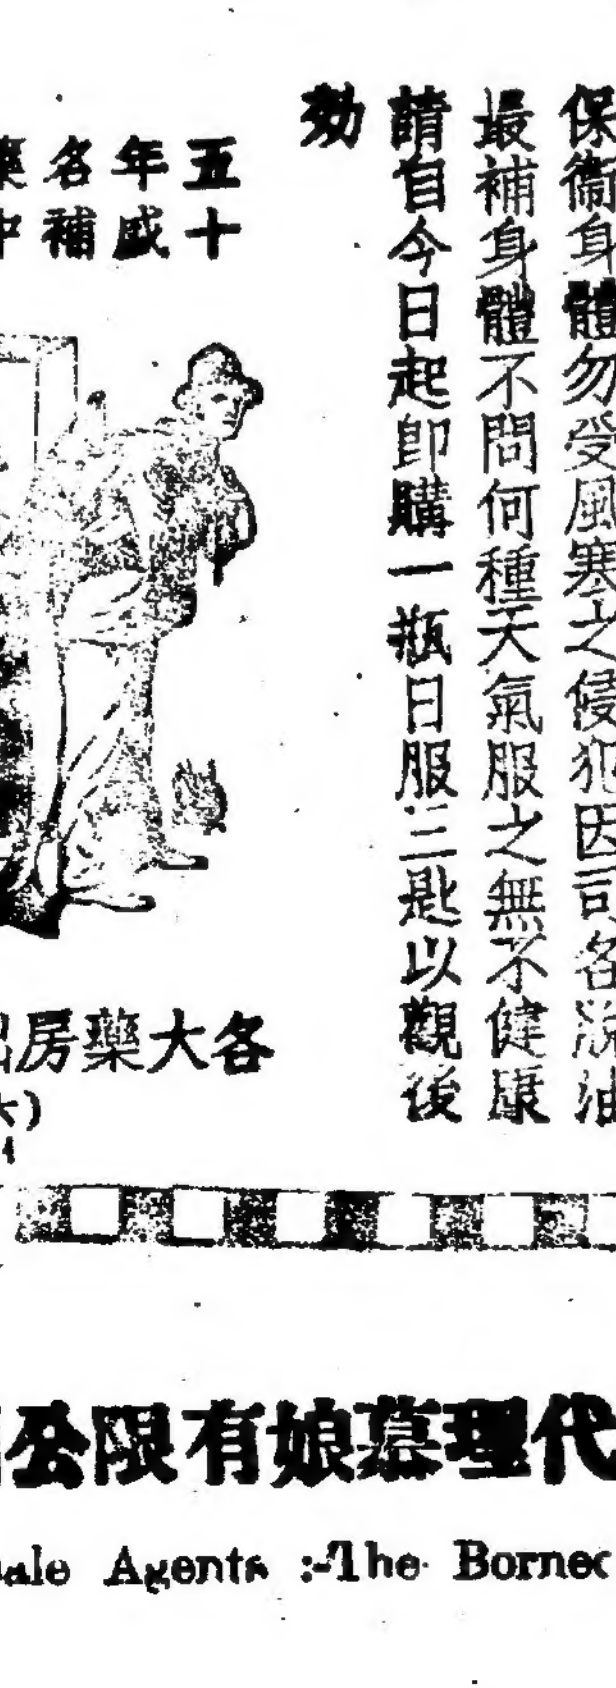 保衛身體勿受風寒之侵犯因司各脫油
最補身體不問何種天氣服之無不健康
請自今日起即購一瓶日服三匙以觀後
効
五十
年盛
名補
各大藥房
代理慕娘有限公
Agents :-The Borneo